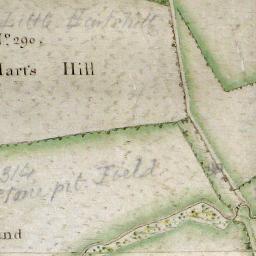 Little Hartshill
No. 290.
Hart's Hill
314
Stone pit Field
and